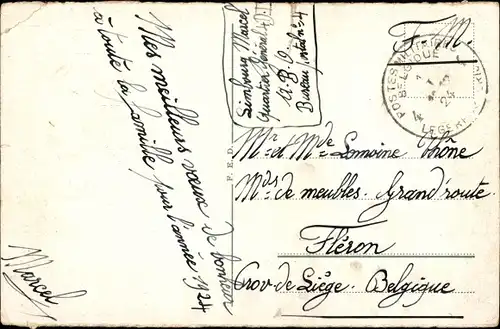 Mes meilleurs vœux de bonheur
à toute la famille pour l'année 1924
Marcel
Limbourg Marcel
Quartier Général 4 D.I.
A.B.O
Bureau postal n° 4
F. M.
POSTES MILITAIRES
BELGIQUE
4
24
LEGERPOSTERIJ
F. E. D.
Mr et Mde Lemoine Thône
Mds de meubles. Grand'route.
Fléron
Prov. de Liège. Belgique